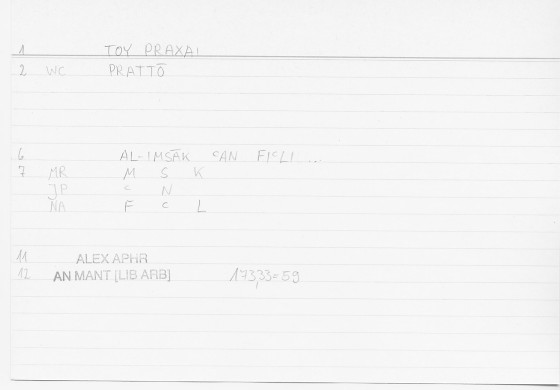 1 TOY PRAXAI
2 WC PRATTŌ
6 AL-IMSĀK ʿAN FIʿLI ...
7 MR M S K
JP ʿ N
NA F ʿ L
11 ALEX APHR
12 AN MANT [LIB ARB] 173,33=59